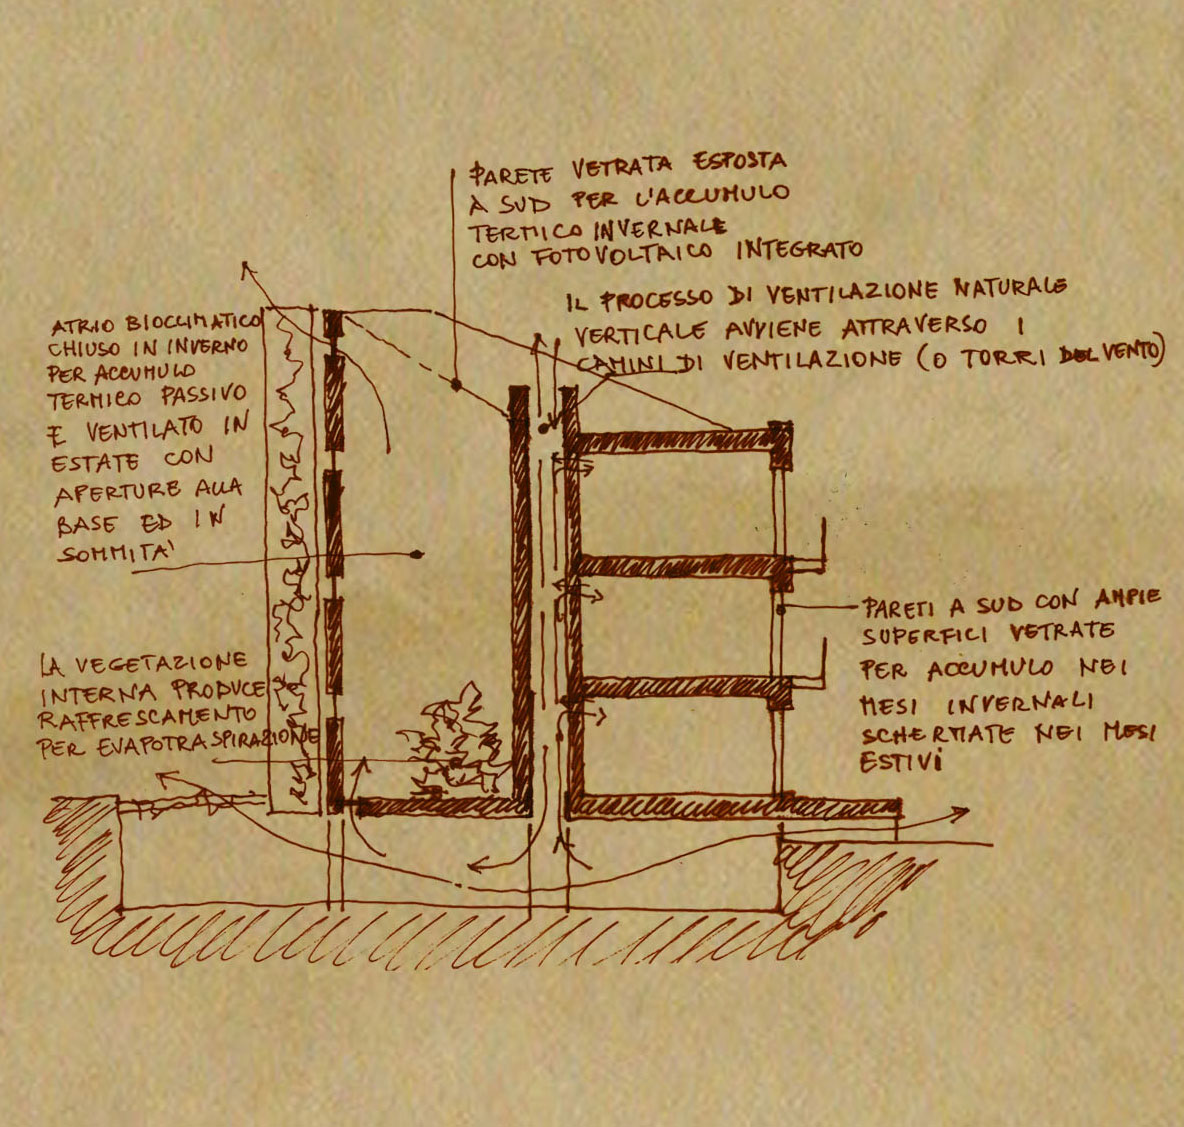 PARETE VETRATA ESPOSTA
A SUD PER L'ACCUMULO
TERMICO INVERNALE
CON FOTOVOLTAICO INTEGRATO
IL PROCESSO DI VENTILAZIONE NATURALE
VERTICALE AVVIENE ATTRAVERSO I
CAMINI DI VENTILAZIONE (O TORRI DEL VENTO)
ATRIO BIOCLIMATICO
CHIUSO IN INVERNO
PER ACCUMULO
TERMICO PASSIVO
E VENTILATO IN
ESTATE CON
APERTURE ALLA
BASE ED IN
SOMMITA'
LA VEGETAZIONE
INTERNA PRODUCE
RAFFRESCAMENTO
PER EVAPOTRASPIRAZIONE
PARETI A SUD CON AMPIE
SUPERFICI VETRATE
PER ACCUMULO NEI
MESI INVERNALI
SCHERMATE NEI MESI
ESTIVI